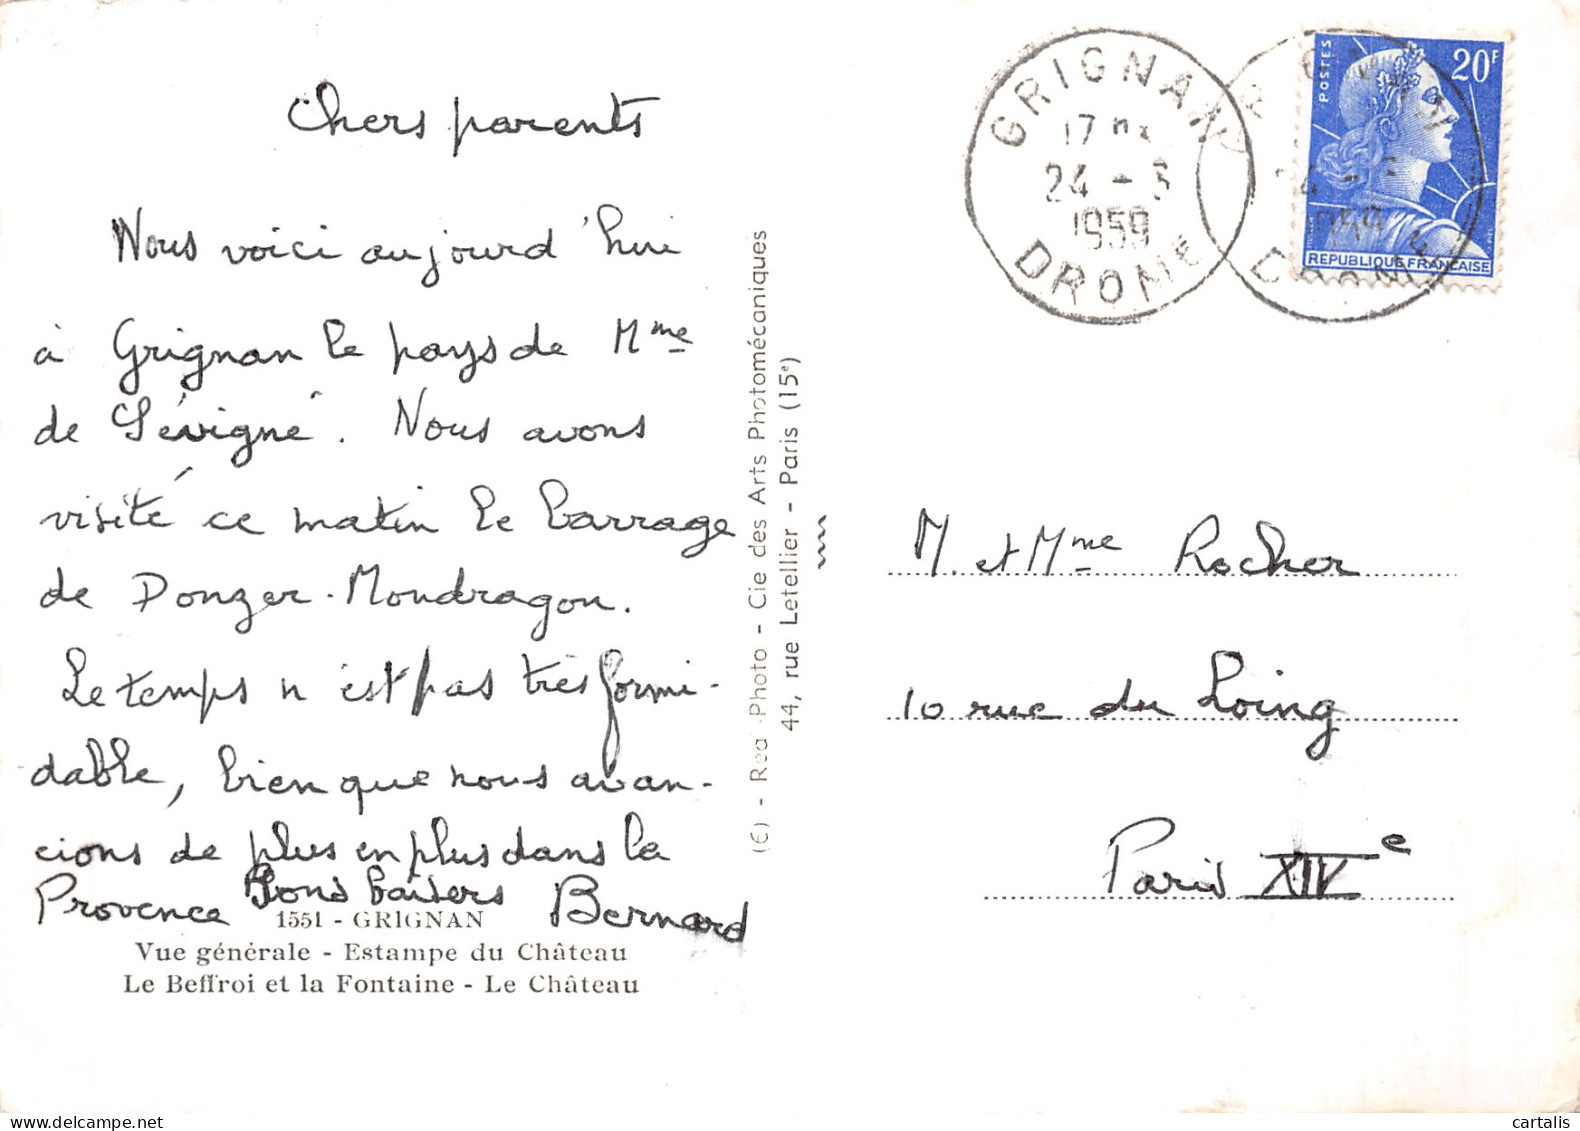 Chers parents
Nous voici aujourd'hui
à Grignan le pays de Mme
de Sévigné. Nous avons
visité ce matin le barrage
de Donzer-Mondragon.
Le temps n'est pas très formi-
dable, bien que nous avan-
cions de plus en plus dans la
Provence Bons baisers Bernard
1551 - GRIGNAN
Vue générale - Estampe du Château
Le Beffroi et la Fontaine - Le Château
Photo - Cie des Arts Photomécaniques
44, rue Letellier - Paris (15e)
GRIGNAN
17
24 -
1959
DROME
POSTES
20F
REPUBLIQUE FRANCAISE
M. et Mme Rocher
10 rue du Loing
Paris XIVe
cartalis